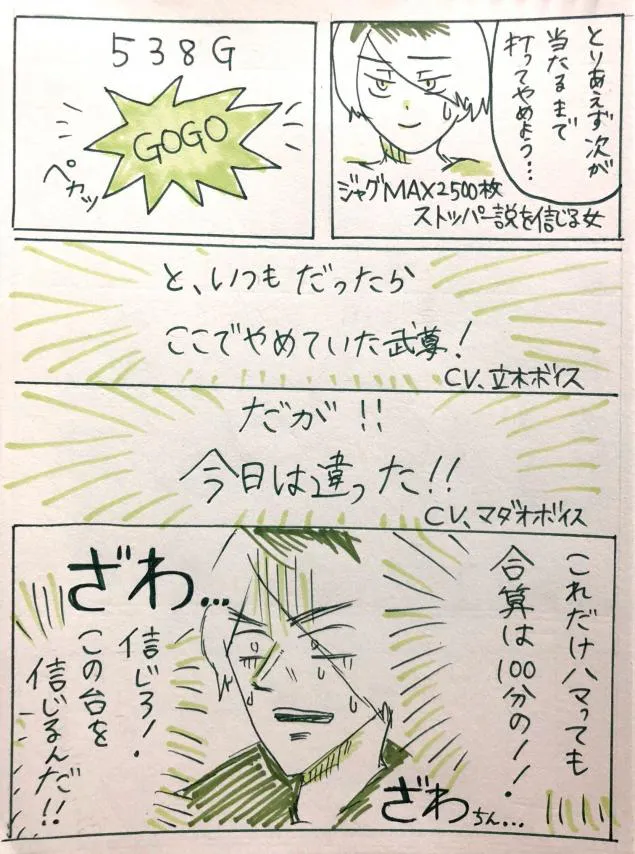 とりあえず次が
当たるまで
打ってやめよう…
ジャグMAX2500枚
ストッパー説を信じる女
538G
GOGO
ペカッ
と、いつもだったら
ここでやめていた武尊!
CV、立木ボイス
だが!!
今日は違った!!
CV、マダオボイス
これだけハマっても
合算は100分の1!
ざわ…
信じろ!
この台を
信じるんだ!!
ざわちん…